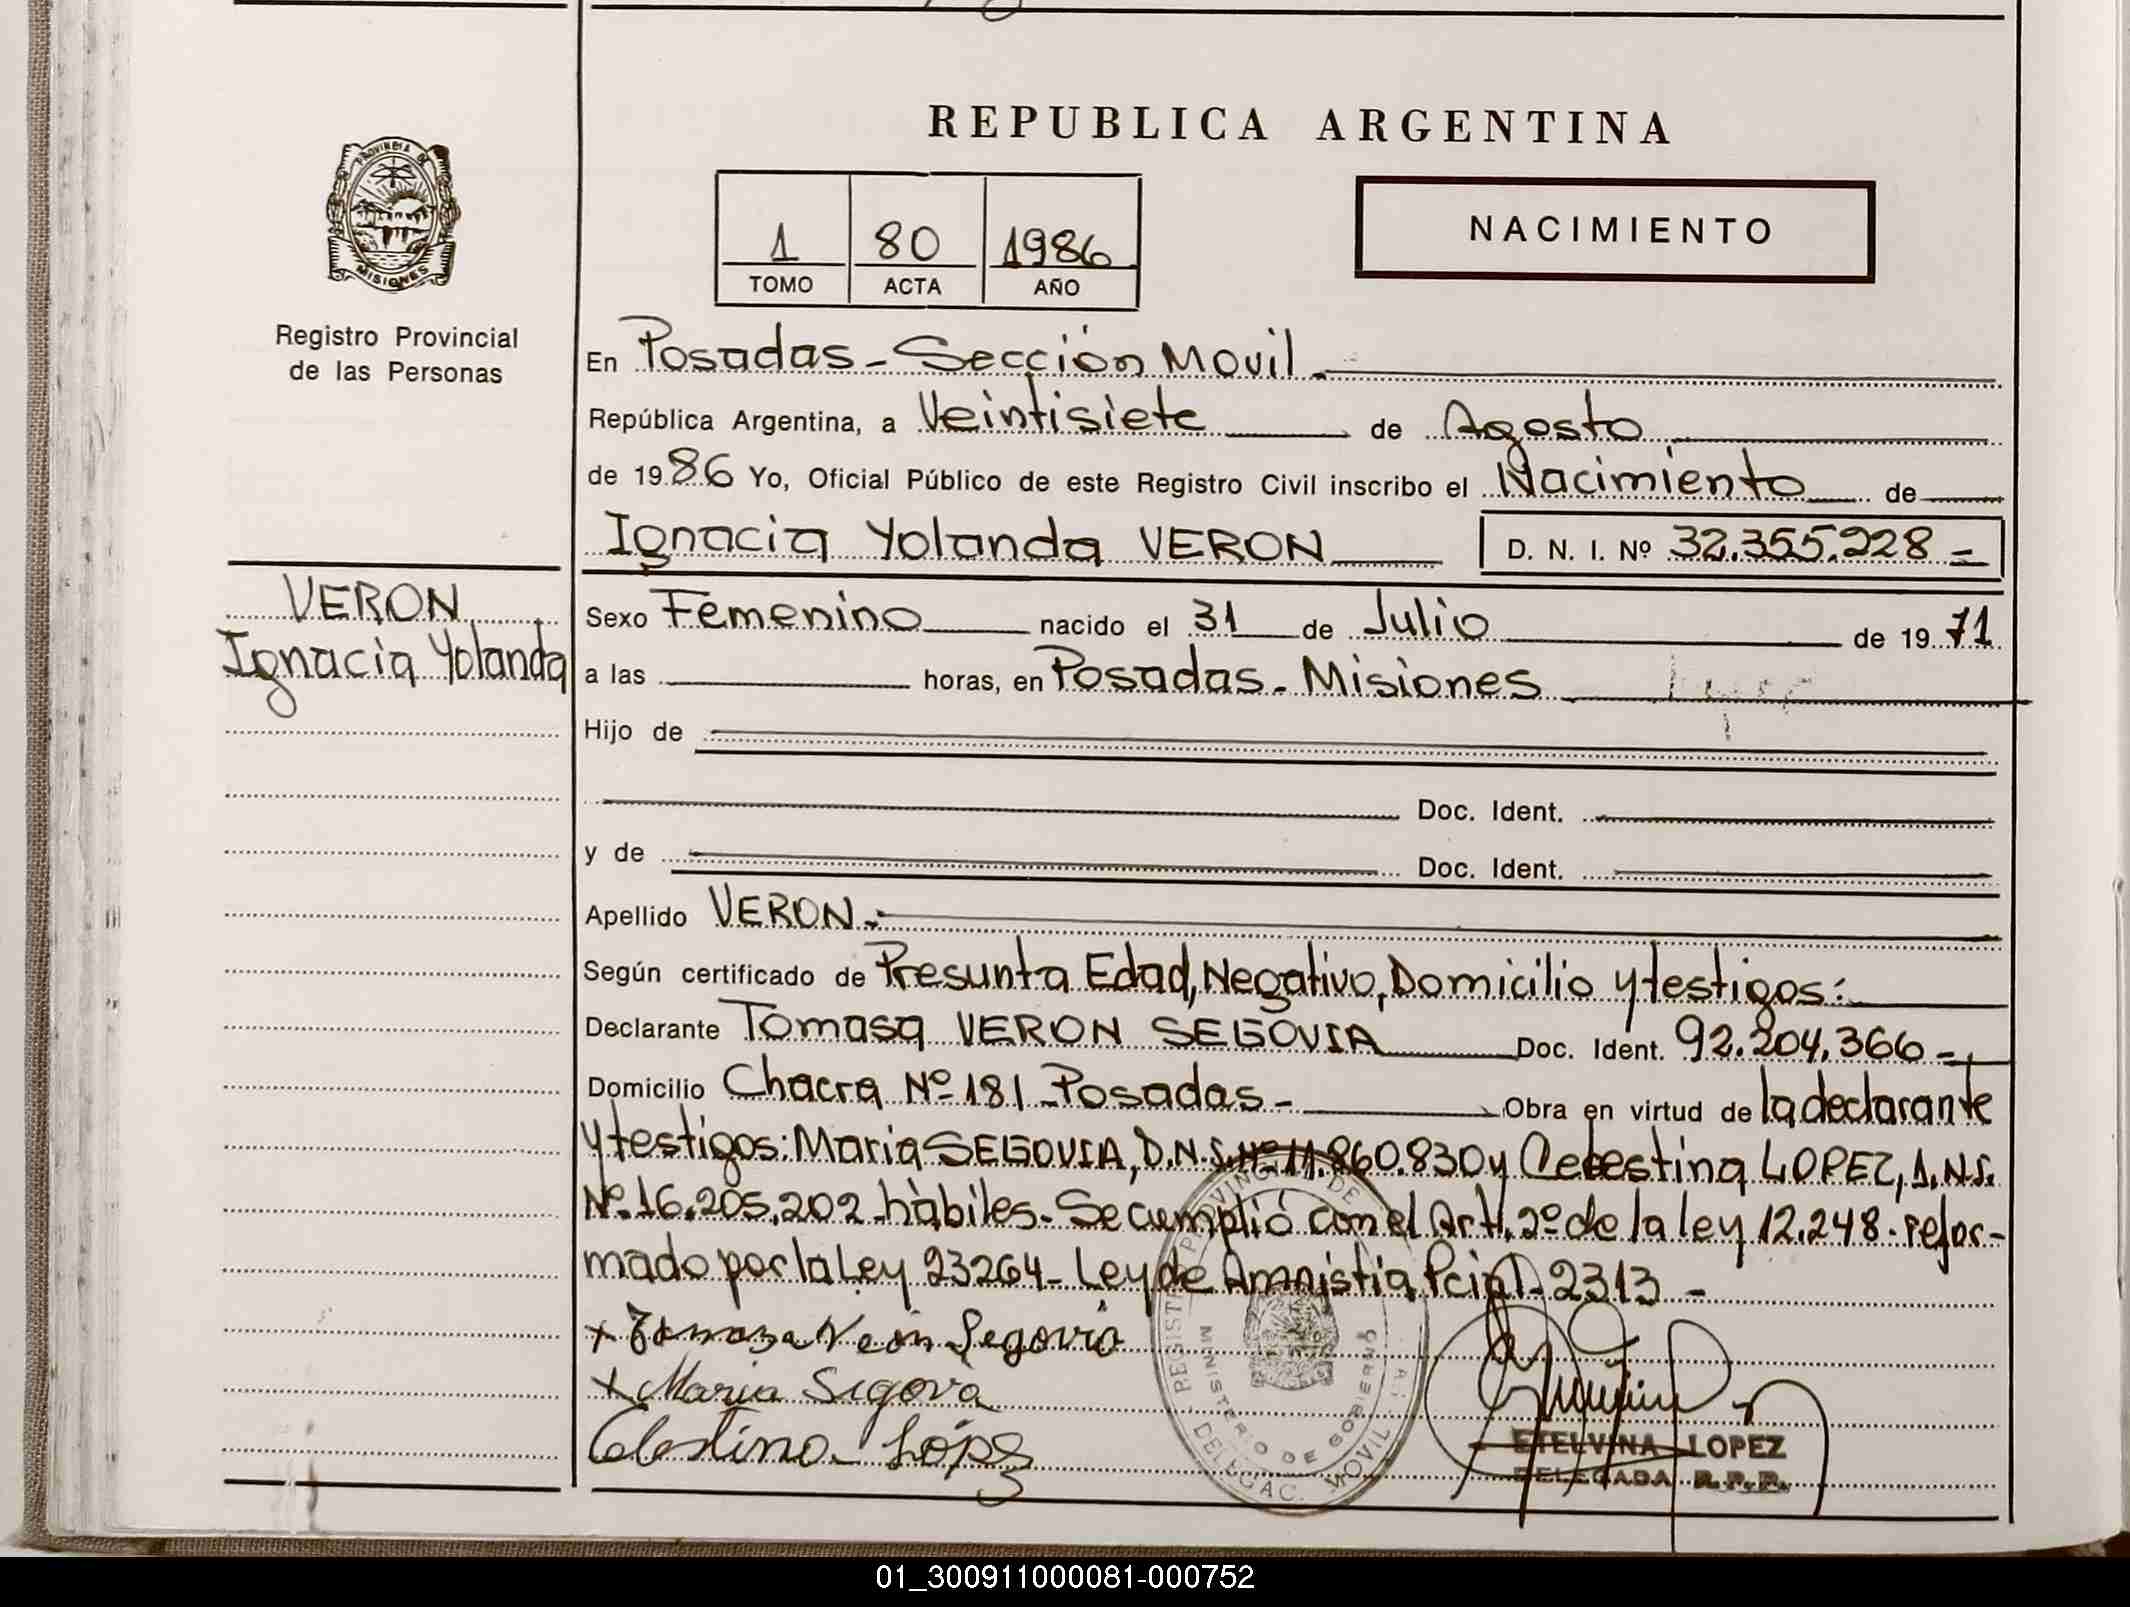 REPUBLICA ARGENTINA
PROVINCIA DE
MISIONES
Registro Provincial
de las Personas
1 80 1986
TOMO ACTA AÑO
NACIMIENTO
En Posadas - Sección Movil.
República Argentina, a Veintisiete de Agosto
de 1986 Yo, Oficial Público de este Registro Civil inscribo el Nacimiento de
Ignacia Yolanda VERON D. N. I. Nº 32.355.228 -
VERON
Ignacia Yolanda
Sexo Femenino nacido el 31 de Julio de 19 71
a las horas, en Posadas - Misiones
Hijo de
Doc. Ident.
y de Doc. Ident.
Apellido VERON.-
Según certificado de Presunta Edad, Negativo, Domicilio y testigos:
Declarante Tomasa VERON SEGOVIA Doc. Ident. 92.204.366 -
Domicilio Chacra Nº 181 - Posadas - Obra en virtud de la declarante
y testigos: Maria SEGOVIA, D.N.I. Nº 11.860.830 y Celestina LOPEZ, D.N.I.
Nº 16.205.202 hàbiles - Se cumplió con el Art. 2º de la ley 12.248 - refor-
mado por la Ley 23264 - Ley de Amnistia Pcial. 2313 -
+ Tomasa Veron Segovia
+ Maria Segova
Celestina López
REGISTR PROVINCIAL DE
MINISTERIO DE GOBIERNO
DELEGAC. MOVIL
ETELVINA LOPEZ
DELEGADA R.P.P.
01_300911000081-000752